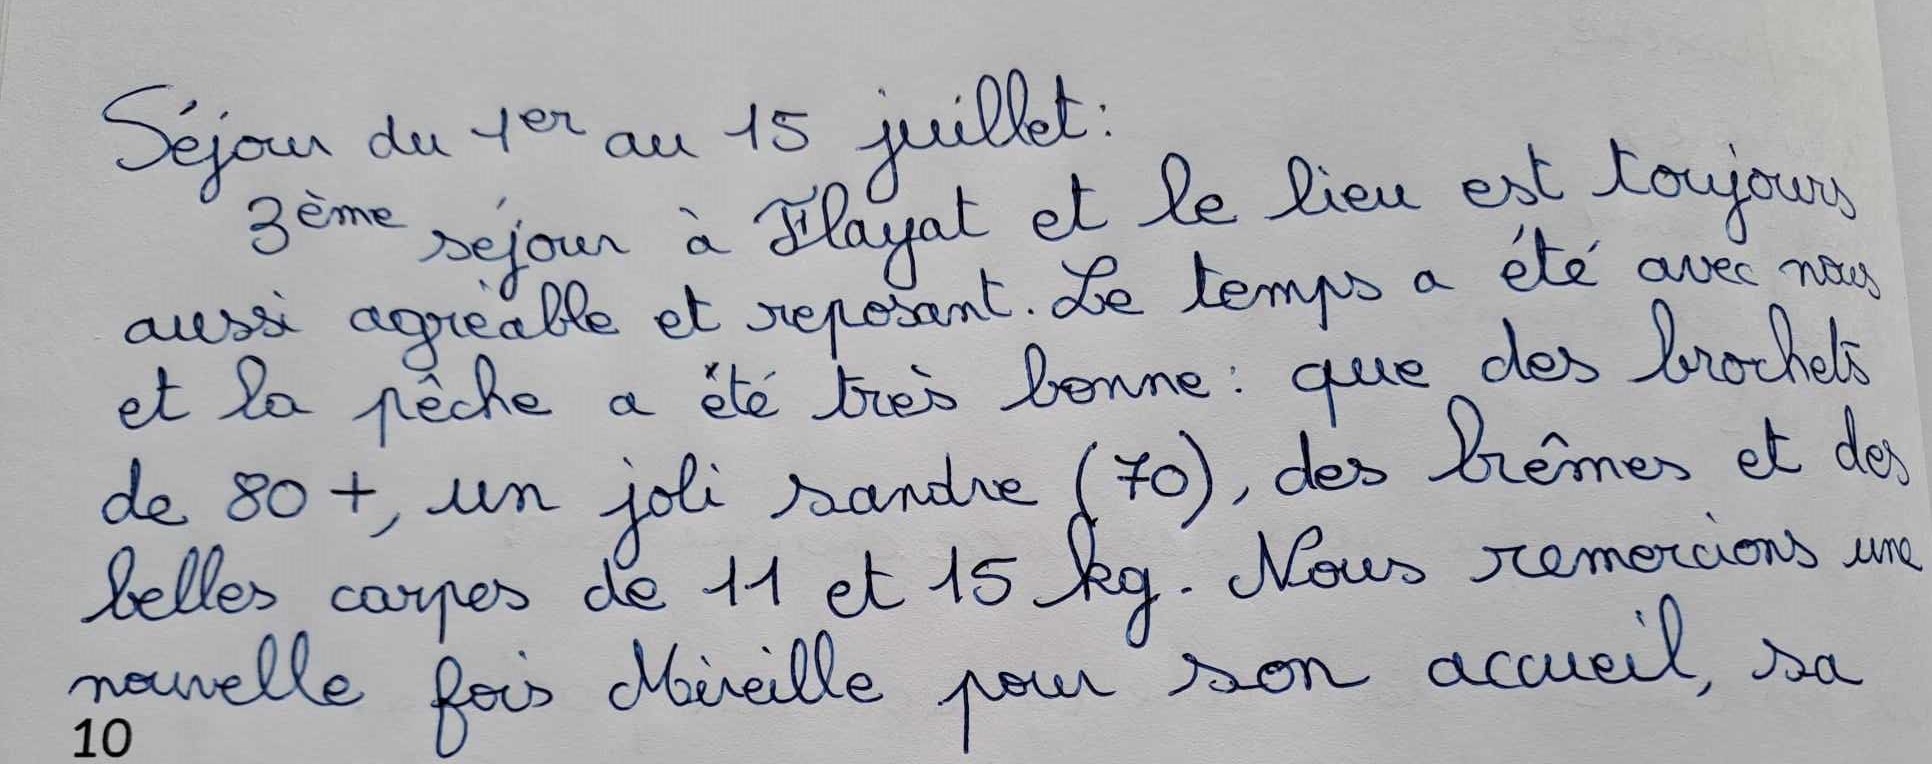 Séjour du 1er au 15 juillet:
3ème séjour à Flayat et le lieu est toujours
aussi agréable et reposant. Le temps a été avec nous
et la pêche a été très bonne: que des brochets
de 80+, un joli sandre (70), des brêmes et des
belles carpes de 11 et 15 kg. Nous remercions une
nouvelle fois Mireille pour son accueil, sa
10